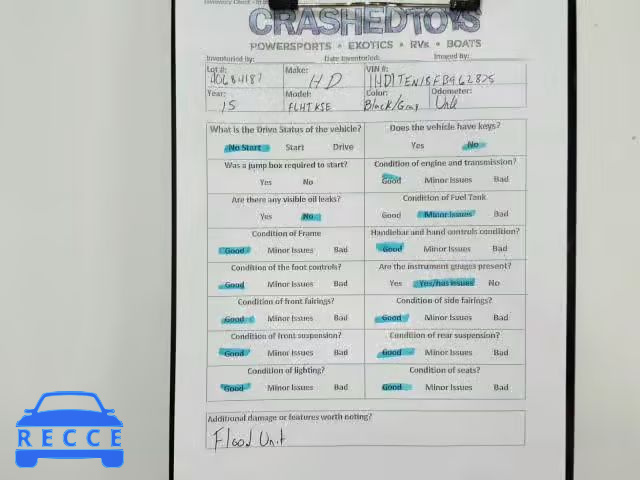 CRASHEDTOYS
POWERSPORTS • EXOTICS • RVs • BOATS
Inventoried by: Date Inventoried: Imaged By:
Lot #: 40684187 Make: HD VIN #: 1HD1TEN18FB962825
Year: 15 Model: FLHTKSE Color: Black/Gray Odometer: Unk
What is the Drive Status of the vehicle? Does the vehicle have keys?
No Start Start Drive Yes No
Was a jump box required to start? Condition of engine and transmission?
Yes No Good Minor Issues Bad
Are there any visible oil leaks? Condition of Fuel Tank
Yes No Good Minor Issues Bad
Condition of Frame Handlebar and hand controls condition?
Good Minor Issues Bad Good Minor Issues Bad
Condition of the foot controls? Are the instrument guages present?
Good Minor Issues Bad Yes Yes/has issues No
Condition of front fairings? Condition of side fairings?
Good Minor Issues Bad Good Minor Issues Bad
Condition of front suspension? Condition of rear suspension?
Good Minor Issues Bad Good Minor Issues Bad
Condition of lighting? Condition of seats?
Good Minor Issues Bad Good Minor Issues Bad
Additional damage or features worth noting?
Flood Unit
RECCE